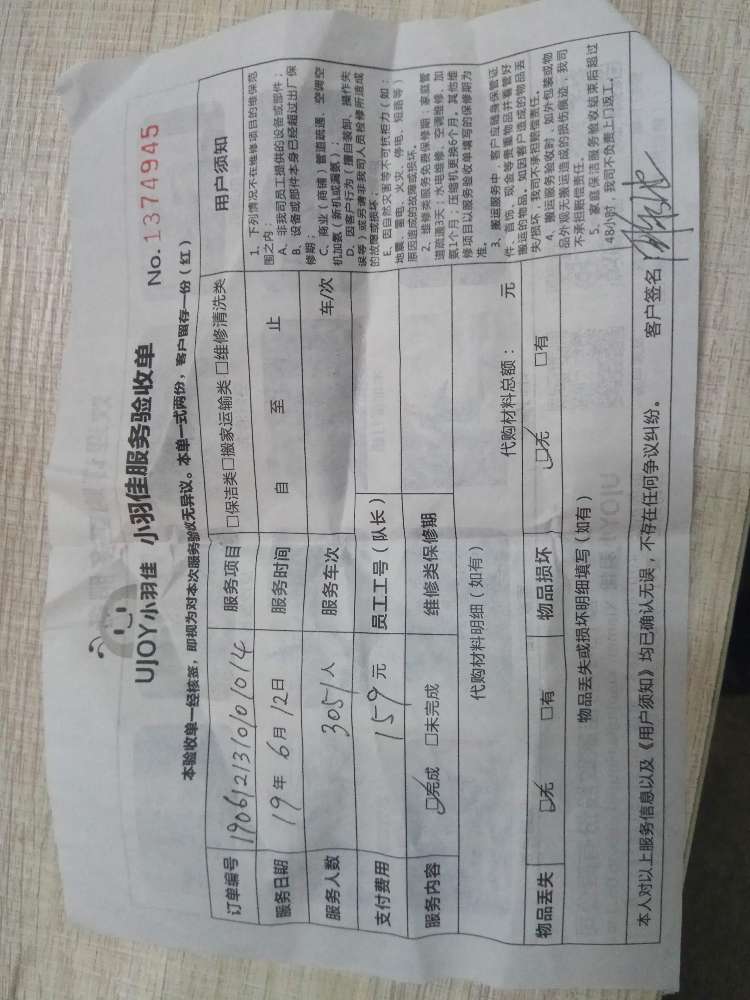 UJOY小羽佳 小羽佳服务验收单
No. 1374945
本验收单一经核签，即视为对本次服务验收无异议。本单一式两份，客户留存一份（红）
订单编号 190612131010101014 服务项目 □保洁类□搬家运输类 □维修清洗类
服务日期 19年6月12日 服务时间 自 至 止
服务人数 3051人 服务车次 车/次
支付费用 159元 员工工号（队长）
服务内容 ☑完成 □未完成 维修类保修期
代购材料明细（如有） 代购材料总额： 元
物品丢失 ☑无 □有 物品损坏 ☑无 □有
物品丢失或损坏明细填写（如有）
用户须知
1、下列情况不在维修项目的维保范
围之内：
A、非我司员工提供的设备或部件；
B、设备或部件本身已经超过出厂保
修期；
C、商业（商铺）管道疏通、空调空
机加氨（新机或漏氨）；
D、因客户行为（擅自装卸、操作失
误等）或另请非我司人员检修所造成
的故障或损坏；
E、因自然灾害等不可抗拒力（如：
地震、雷电、火灾、停电、短路等）
原因造成的故障或损坏。
2、维修类服务免费保修期：家庭管
道疏通3天；水电维修、空调维修、加
氨1个月；压缩机更换6个月。其他维
修项目以服务验收单填写的保修期为
准。
3、搬运服务中，客户应随身保管证
件、首饰、现金等贵重物品并看管好
搬运的物品。如因客户造成的物品丢
失/损坏，我司不承担赔偿责任。
4、搬运服务验收时，如外包装或物
品外观无搬运造成的损伤痕迹，我司
不承担赔偿责任。
5、家庭保洁服务验收结束后超过
48小时，我司不负责上门返工。
本人对以上服务信息以及《用户须知》均已确认无误，不存在任何争议纠纷。 客户签名